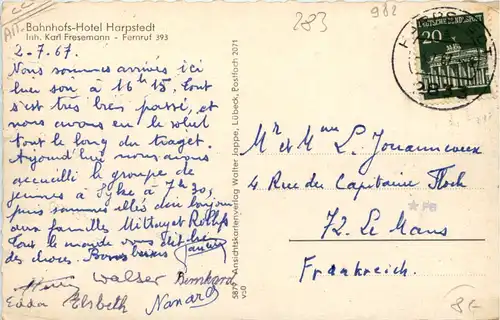 Bahnhofs-Hotel Harpstedt
Inh. Karl Fresemann - Fernruf 393
2-7-67
Nous sommes arrivés ici
hier soir à 16h15. Tout
s'est très bien passé, et
nous avons eu le soleil
tout le long du trajet.
Aujourd'hui nous avons
accueilli le groupe de
jeunes à Syke à 7h30,
puis sommes allés dire bonjour
aux familles
Tout le monde vous dit bien
des choses. Bons baisers
Walser Bernhard
Edda Elsbeth
5879 Ansichtskartenverlag Walter Jappe, Lübeck, Postfach 2071
283
982
DEUTSCHE BUNDESPOST
20
Mr et Mme L. Jouanneaux
4 Rue du Capitaine Floch
72. Le Mans
Frankreich.
8-